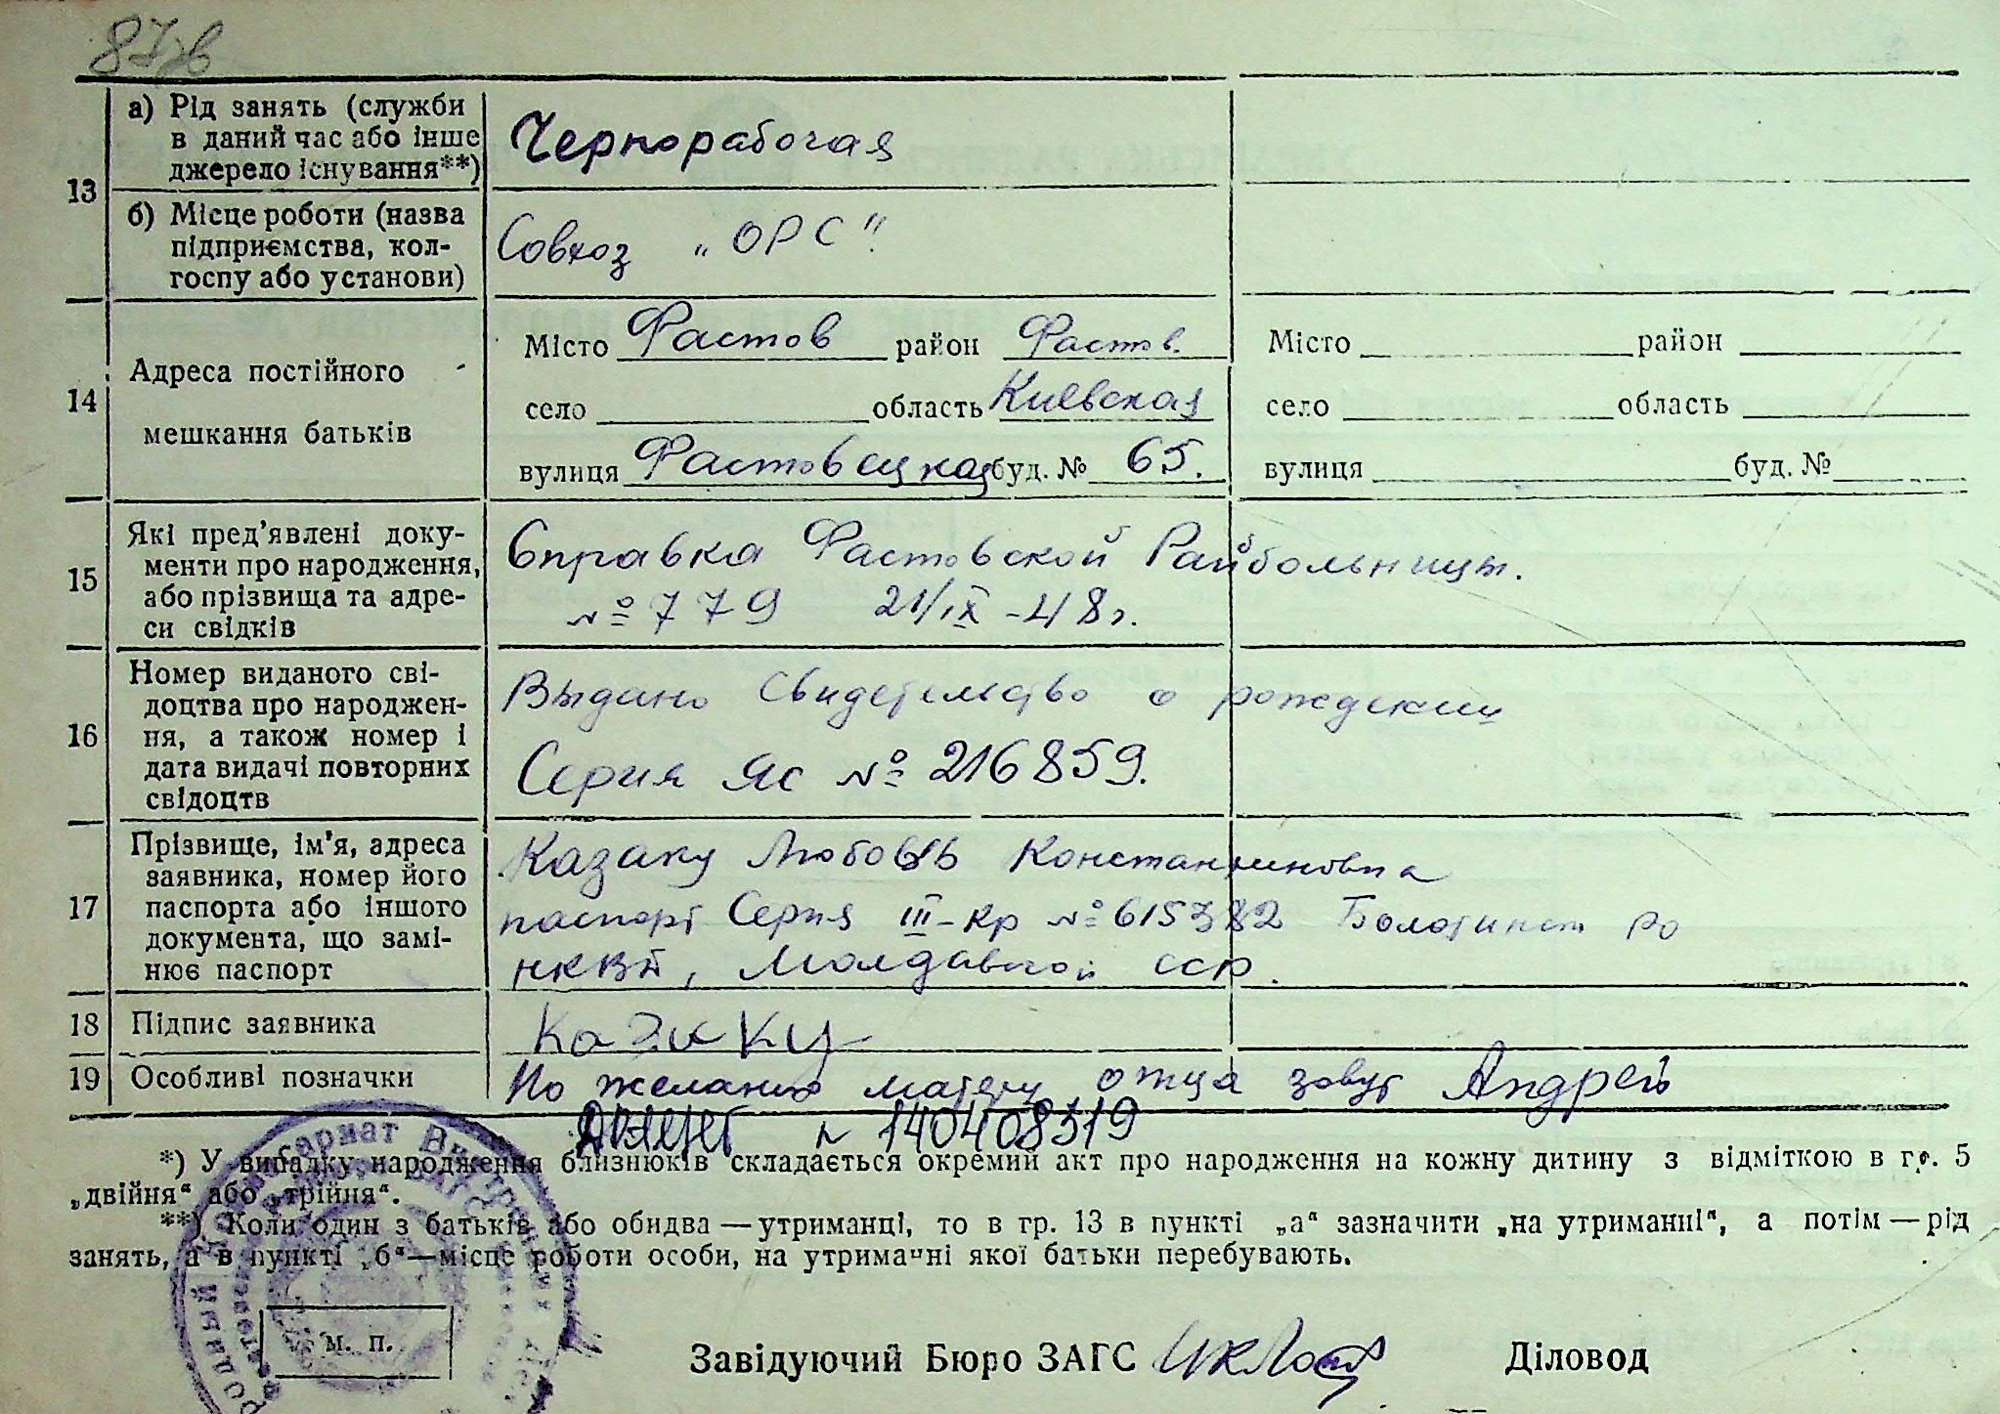 87зв
13
а) Рід занять (служби
в даний час або інше
джерело існування**)
Чернорабочая
б) Місце роботи (назва
підприємства, кол-
госпу або установи)
Совхоз „ОРС".
14
Адреса постійного
мешкання батьків
Місто Фастов район Фастов.
село область Киевская
вулиця Фастовецкая буд. № 65.
Місто район
село область
вулиця буд. №
15
Які пред'явлені доку-
менти про народження,
або прізвища та адре-
си свідків
Справка Фастовской Райбольницы.
№ 779 21/IX-48г.
16
Номер виданого сві-
доцтва про народжен-
ня, а також номер і
дата видачі повторних
свідоцтв
Выдано Свидетельство о рождении
Серия ЯС № 216859.
17
Прізвище, ім'я, адреса
заявника, номер його
паспорта або іншого
документа, що замі-
нює паспорт
Казаку Любовь Константиновна
паспорт Серия III-Кр № 615382 Болотинст РО
НКВД, Молдавской ССР.
18
Підпис заявника
Казаку
19
Особливі позначки
По желанию матери отца зовут Андрей
№ 140408319
*) У випадку народження близнюків складається окремий акт про народження на кожну дитину з відміткою в гр. 5
„двійня“ або „трійня“.
**) Коли один з батьків або обидва — утриманці, то в гр. 13 в пункті „а“ зазначити „на утриманні“, а потім — рід
занять, а в пункті „б“—місце роботи особи, на утриманні якої батьки перебувають.
м. п.
Завідуючий Бюро ЗАГС
Діловод